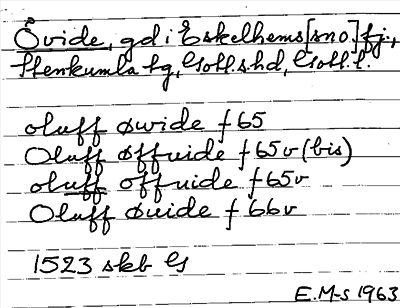 Övide, gd i Eskelhems [sno.] fj.,
Stenkumla tg, Gotl.s hd, Gotl. l.
oluff øwide f 65
Oluff øffuide f 65v (bis)
oluff offuide f 65v
Oluff øuide f 66v
1523 skb G
E.M-s 1963